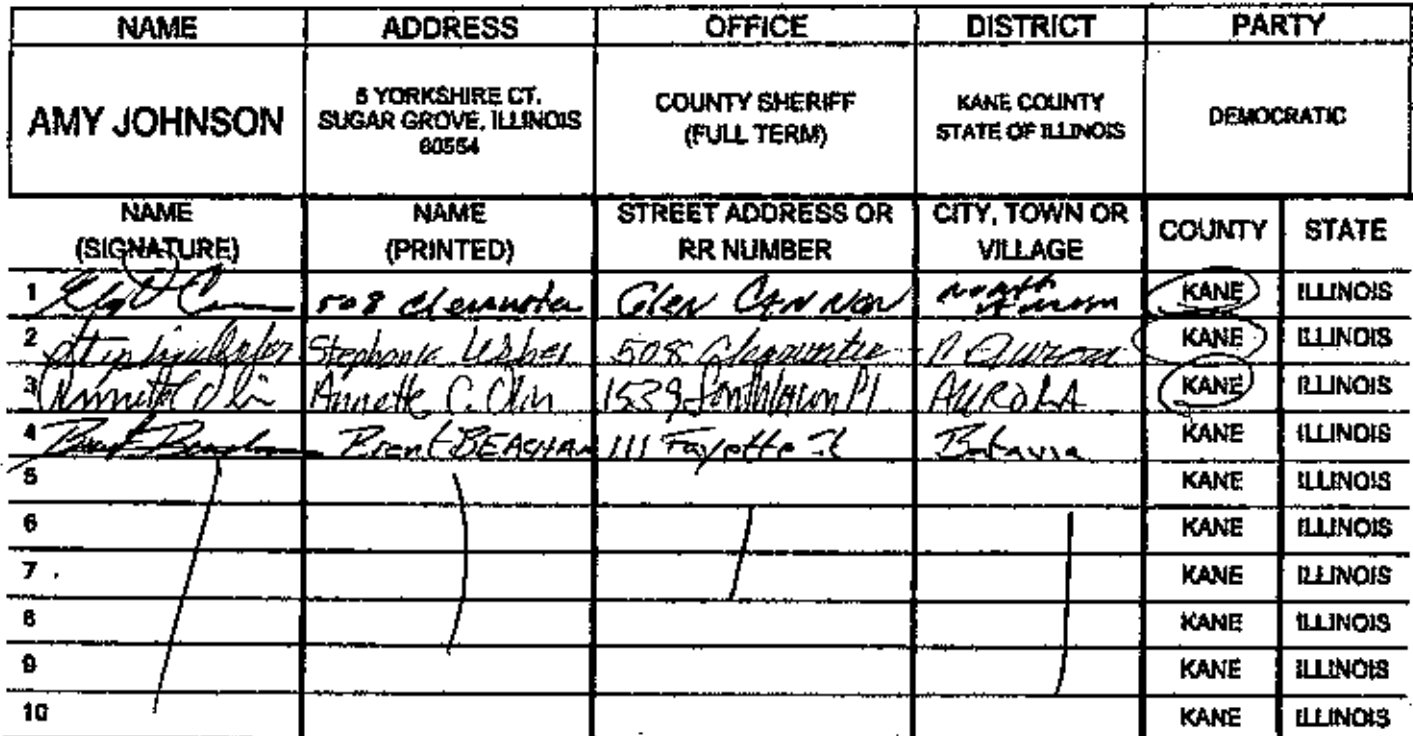 NAME ADDRESS OFFICE DISTRICT PARTY
AMY JOHNSON 5 YORKSHIRE CT. SUGAR GROVE, ILLINOIS 60554 COUNTY SHERIFF (FULL TERM) KANE COUNTY STATE OF ILLINOIS DEMOCRATIC
NAME (SIGNATURE) NAME (PRINTED) STREET ADDRESS OR RR NUMBER CITY, TOWN OR VILLAGE COUNTY STATE
1 508 Glen CANNON North KANE ILLINOIS
2 Stephanie 508 KANE ILLINOIS
3 Annette C. Olin 1539 Pl AURORA KANE ILLINOIS
4 Brent BEACHAM 111 Batavia KANE ILLINOIS
5 KANE ILLINOIS
6 KANE ILLINOIS
7 KANE ILLINOIS
8 KANE ILLINOIS
9 KANE ILLINOIS
10 KANE ILLINOIS